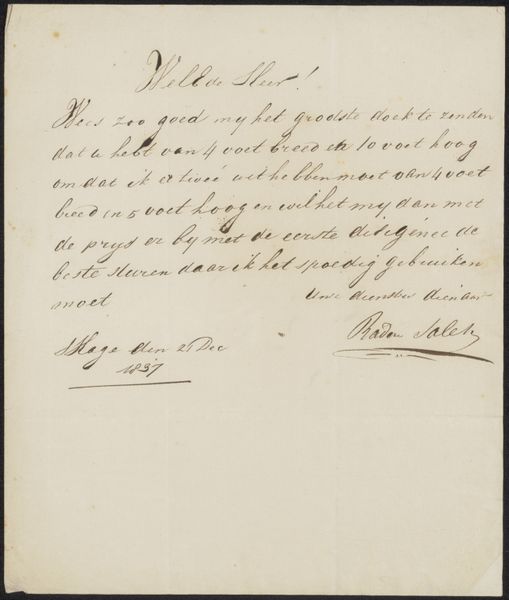 WelEde Heer!
Wees zoo goed my het grootste doek te zenden
dat u hebt van 4 voet breed en 10 voet hoog
om dat ik er twee uit hebben moet van 4 voet
breed en 5 voet hoog en wil het my dan met
de prys er by met de eerste diligence de
beste sturen daar ik het spoedig gebruiken
moet
Uwe dienaar
Raden Saleh
SHage den 2 Dec
1837